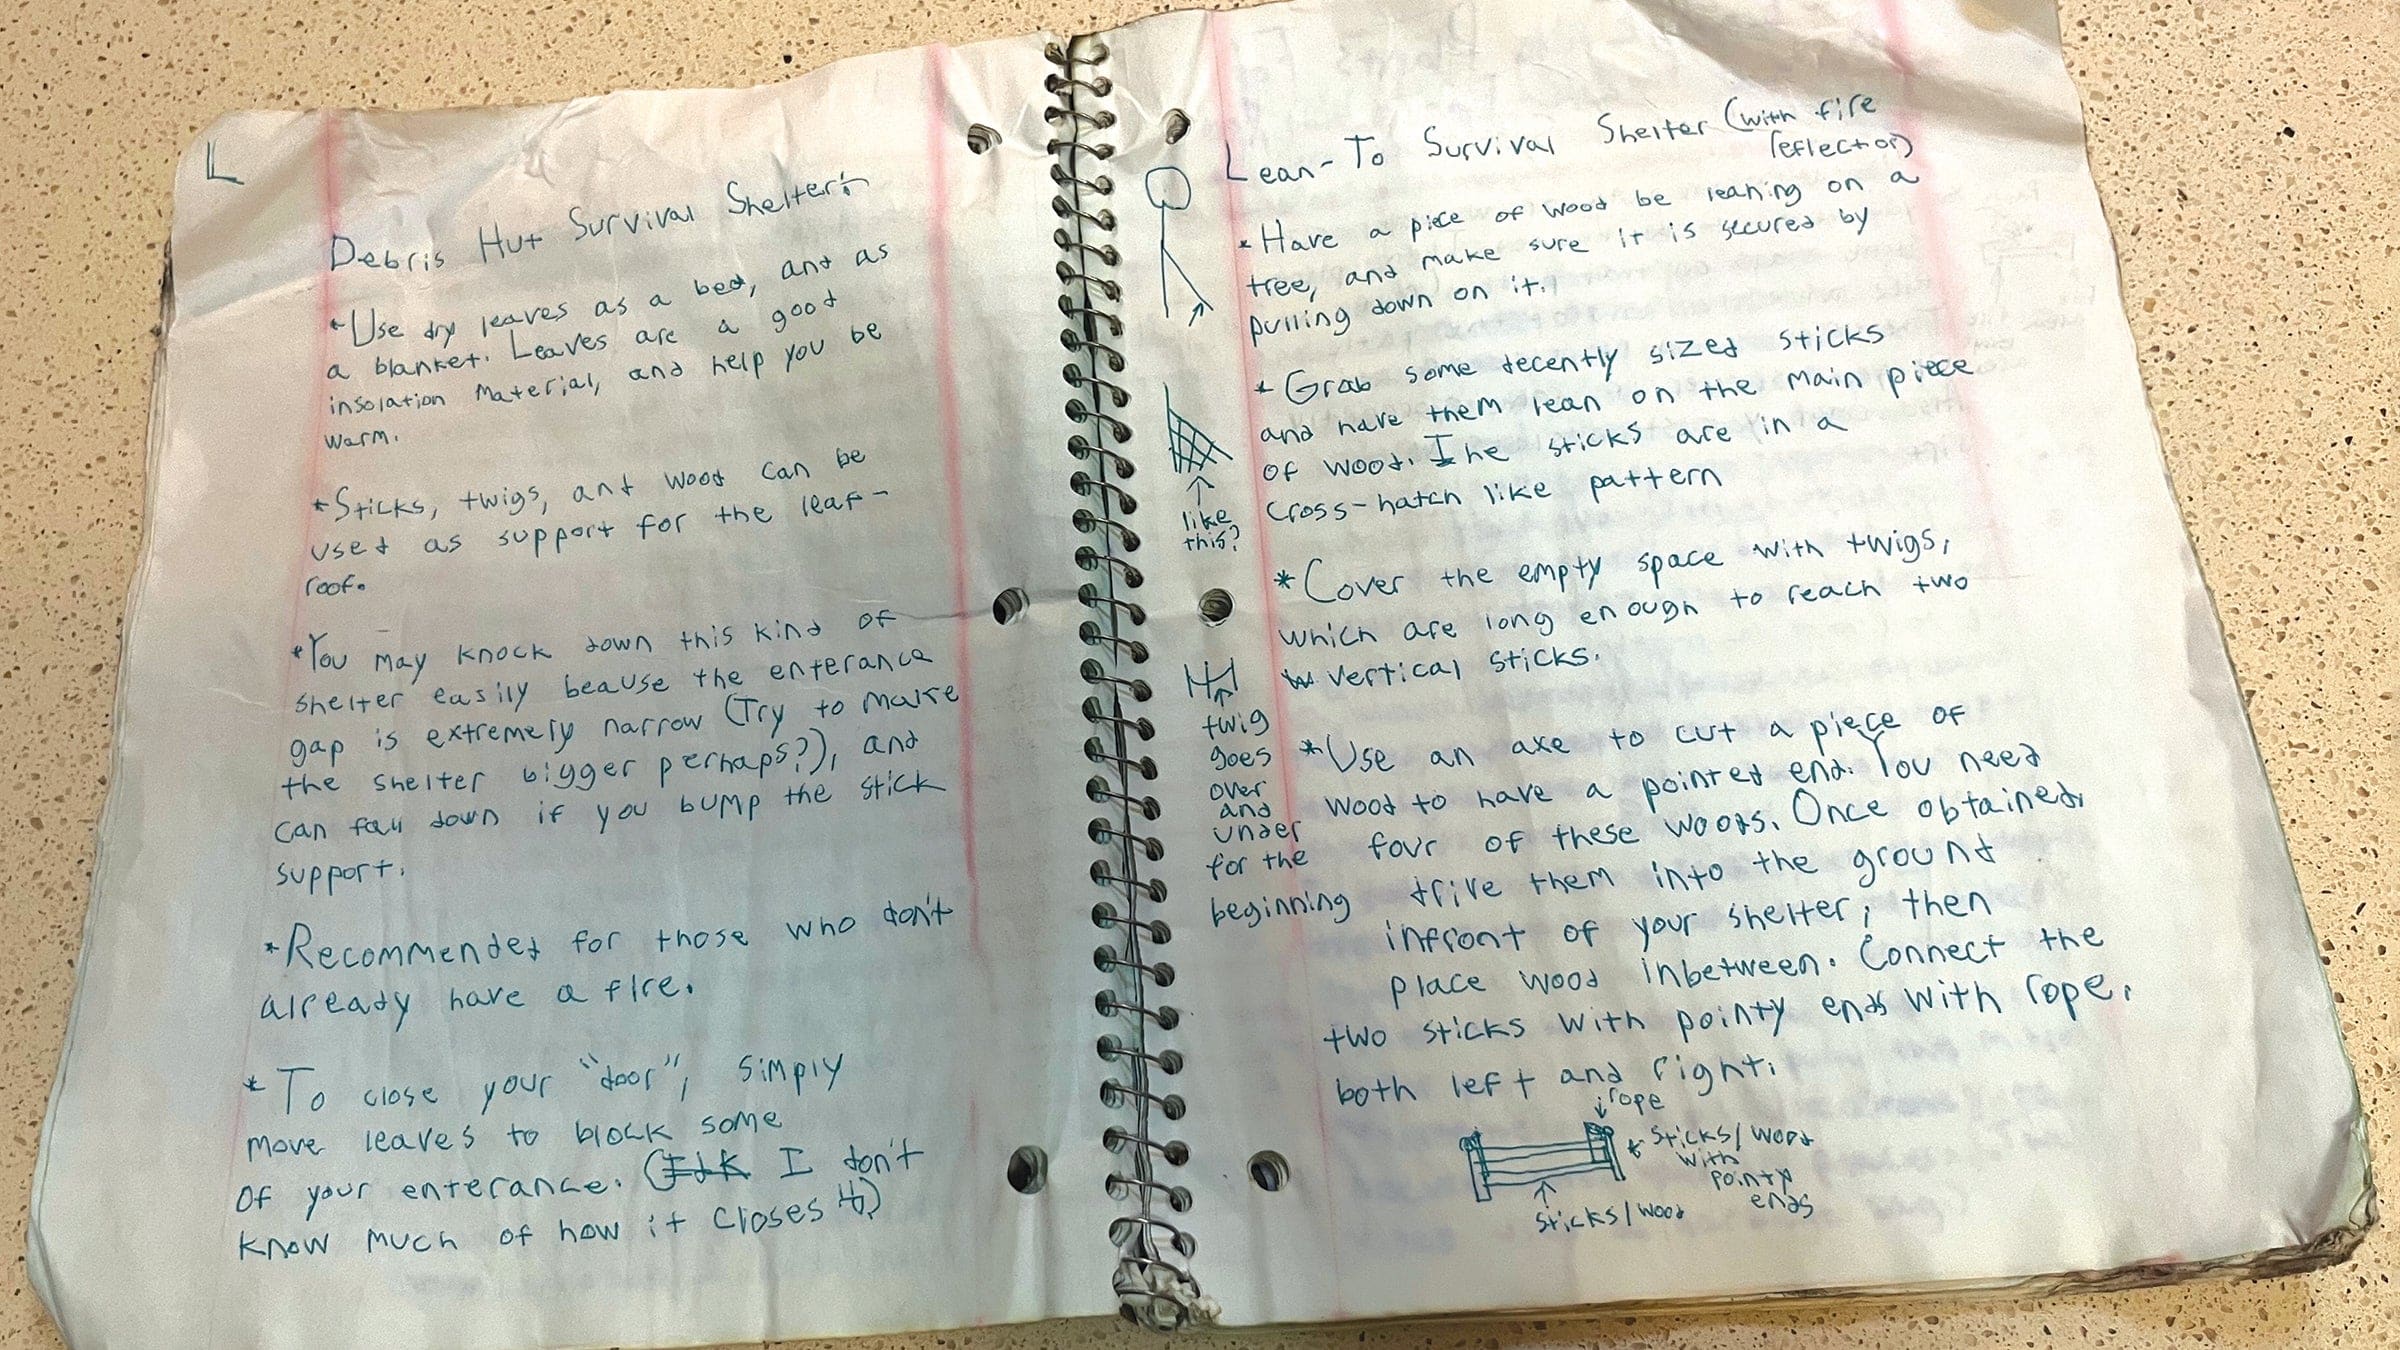 L
Debris Hut Survival Shelter:
*Use dry leaves as a bed, and as
a blanket. Leaves are a good
insolation material, and help you be
warm.
*Sticks, twigs, and wood can be
used as support for the leaf-
roof.
*You may knock down this kind of
shelter easily beause the enterance
gap is extremely narrow (Try to make
the shelter bigger perhaps?), and
can fall down if you bump the stick
support.
*Recommended for those who don't
already have a fire.
*To close your "door", simply
move leaves to block some
of your enterance. (Idk I don't
know much of how it closes it)
Lean-To Survival Shelter (with fire
reflector)
*Have a piece of wood be leaning on a
tree, and make sure it is secured by
pulling down on it.
*Grab some decently sized sticks
and have them lean on the main piece
of wood. The sticks are in a
cross-hatch like pattern
like
this?
*Cover the empty space with twigs,
which are long enough to reach two
vertical sticks.
twig
goes
over
and
under
for the
beginning
*Use an axe to cut a piece of
wood to have a pointed end. You need
four of these woods. Once obtained,
drive them into the ground
infront of your shelter, then
place wood inbetween. Connect the
two sticks with pointy ends with rope,
both left and right.
rope
*sticks/wood
with
pointy
ends
sticks/wood